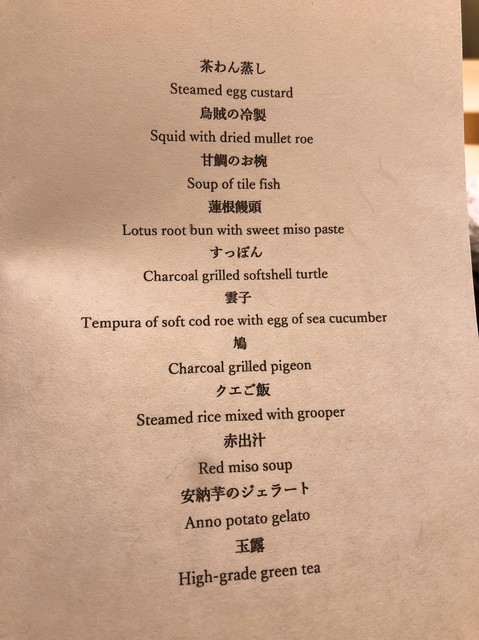 茶わん蒸し
Steamed egg custard
烏賊の冷製
Squid with dried mullet roe
甘鯛のお椀
Soup of tile fish
蓮根饅頭
Lotus root bun with sweet miso paste
すっぽん
Charcoal grilled softshell turtle
雲子
Tempura of soft cod roe with egg of sea cucumber
鳩
Charcoal grilled pigeon
クエご飯
Steamed rice mixed with grooper
赤出汁
Red miso soup
安納芋のジェラート
Anno potato gelato
玉露
High-grade green tea